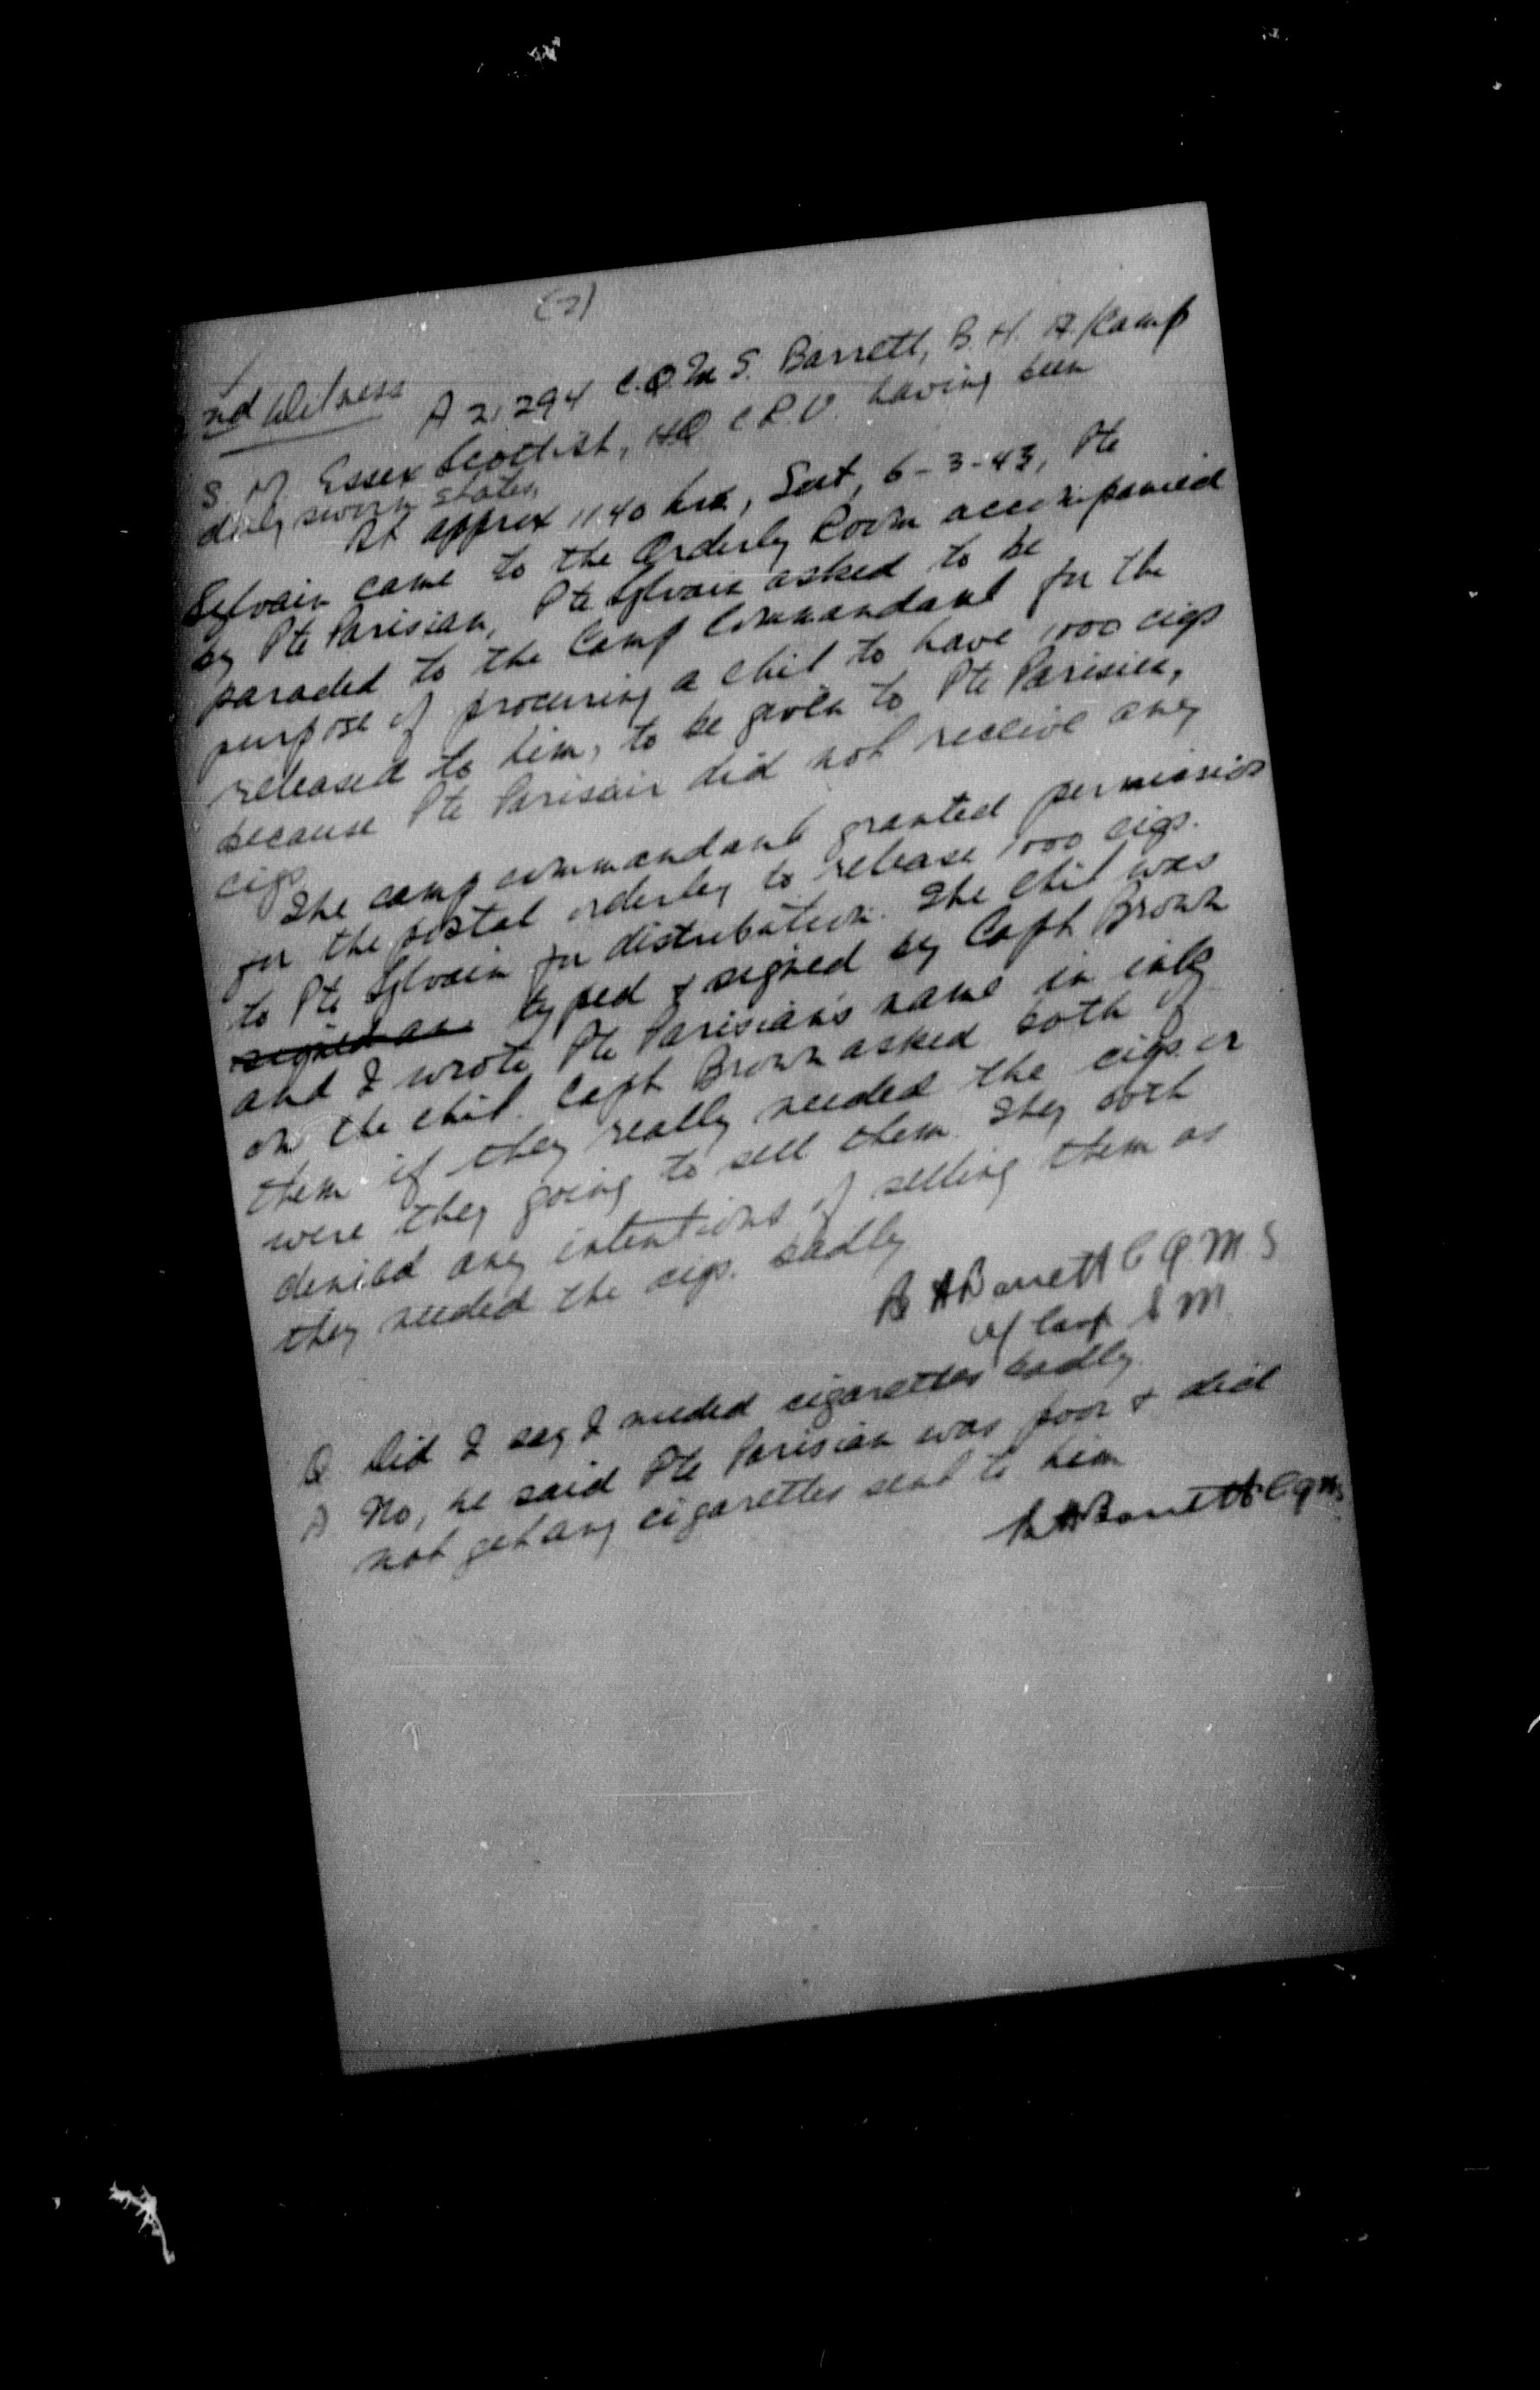 (2)
2nd Witness
A 21294 C.Q.M.S. Barrett, B. H. A/Camp
S. M. Essex Scottish, HQ C.R.U. having been
duly sworn states,
At approx 1140 hrs, Sat, 6-3-43, Pte
Sylvain came to the Orderly Room accompanied
by Pte Parisian, Pte Sylvain asked to be
paraded to the Camp Commandant for the
purpose of procuring a chit to have 1000 cigs
released to him, to be given to Pte Parisien,
because Pte Parisair did not receive any
cigs.
The camp commandant granted permission
for the postal orderley to release 1000 cigs.
to Pte Sylvain for distribution. The chit was
signed an typed & signed by Capt Brown
and I wrote Pte Parisian's name in ink
on the chit. Capt Brown asked both of
them if they really needed the cigs. or
were they going to sell them. They both
denied any intentions of selling them as
they needed the cigs. badly
B H Barrett C Q.M.S
a/ Camp S M.
Q Did I say I needed cigarettes badly.
A No, he said Pte Parisian was poor & did
not get any cigarettes sent to him
B H Barrett CQMS